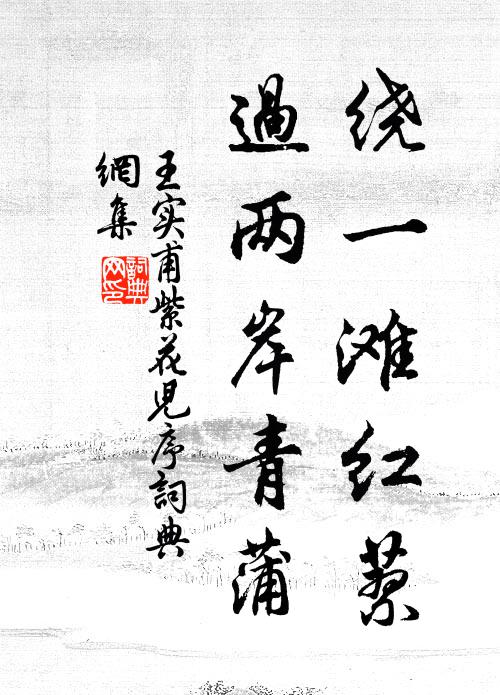 绕一滩红蓼
過两岸青蒲
王实甫紫花児序詞典
網集
詞典
网印